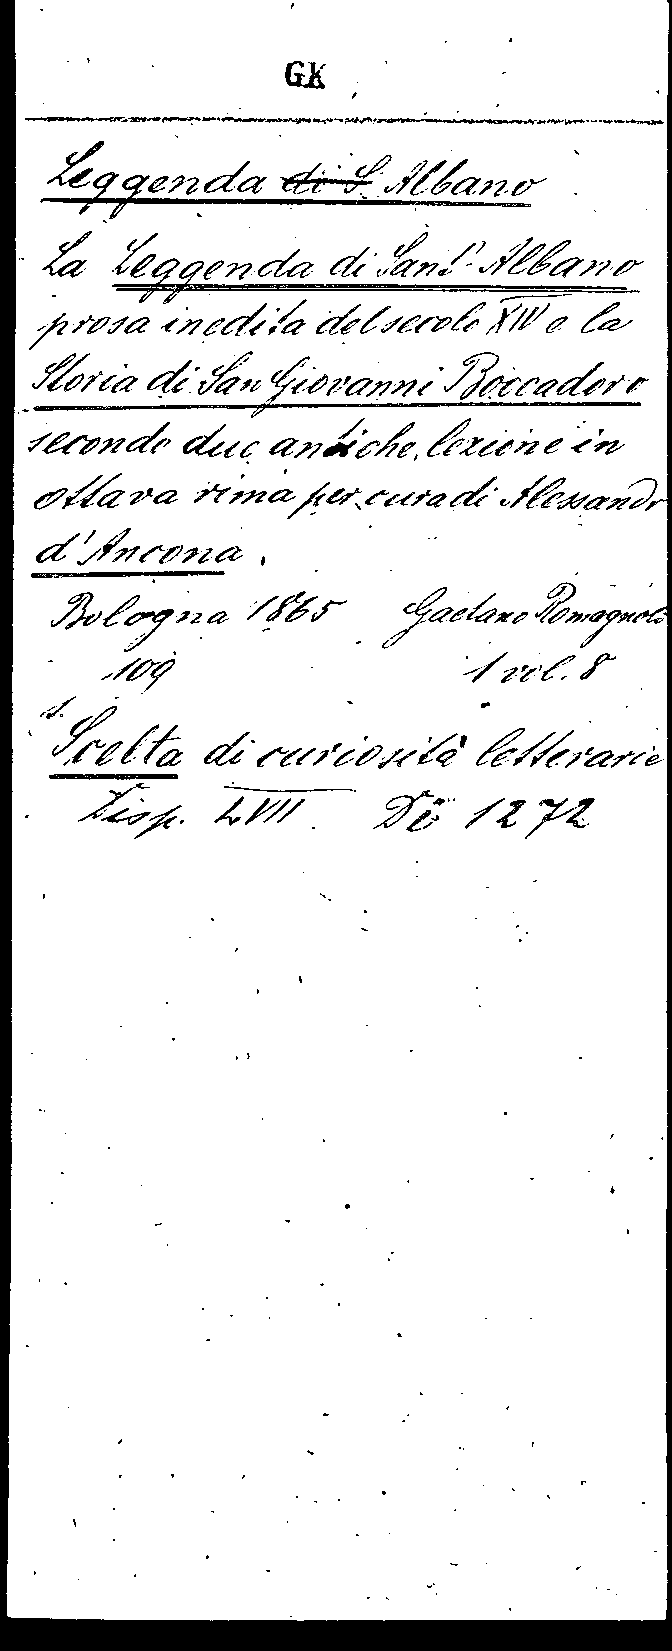 GK
Leggenda di S. Albano
La Leggenda di Sant' Albano
prosa inedita del secolo XIV e la
Storia di San Giovanni Boccadoro
secondo due antiche lezione in
ottava rima per cura di Alessandro
d'Ancona.
Bologna 1865 Gaetano Romagnoli
109 1 vol. 8
s.
Scelta di curiosità letterarie
Disp. LVII. Dë 1272